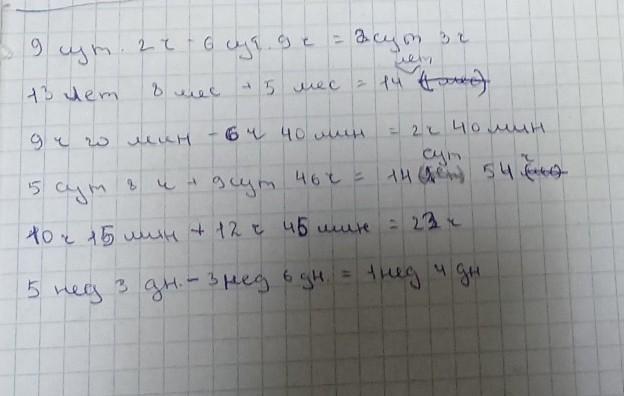 9 сут. 2 ч - 6 сут. 9 ч = 2 сут 3 ч
13 лет 8 мес + 5 мес = 14 лет
9 ч 20 мин - 6 ч 40 мин = 2 ч 40 мин
5 сут 8 ч + 9 сут 46 ч = 14 сут 54 ч
10 ч 15 мин + 12 ч 45 мин = 23 ч
5 нед 3 дн. - 3 нед 6 дн. = 1 нед 4 дн